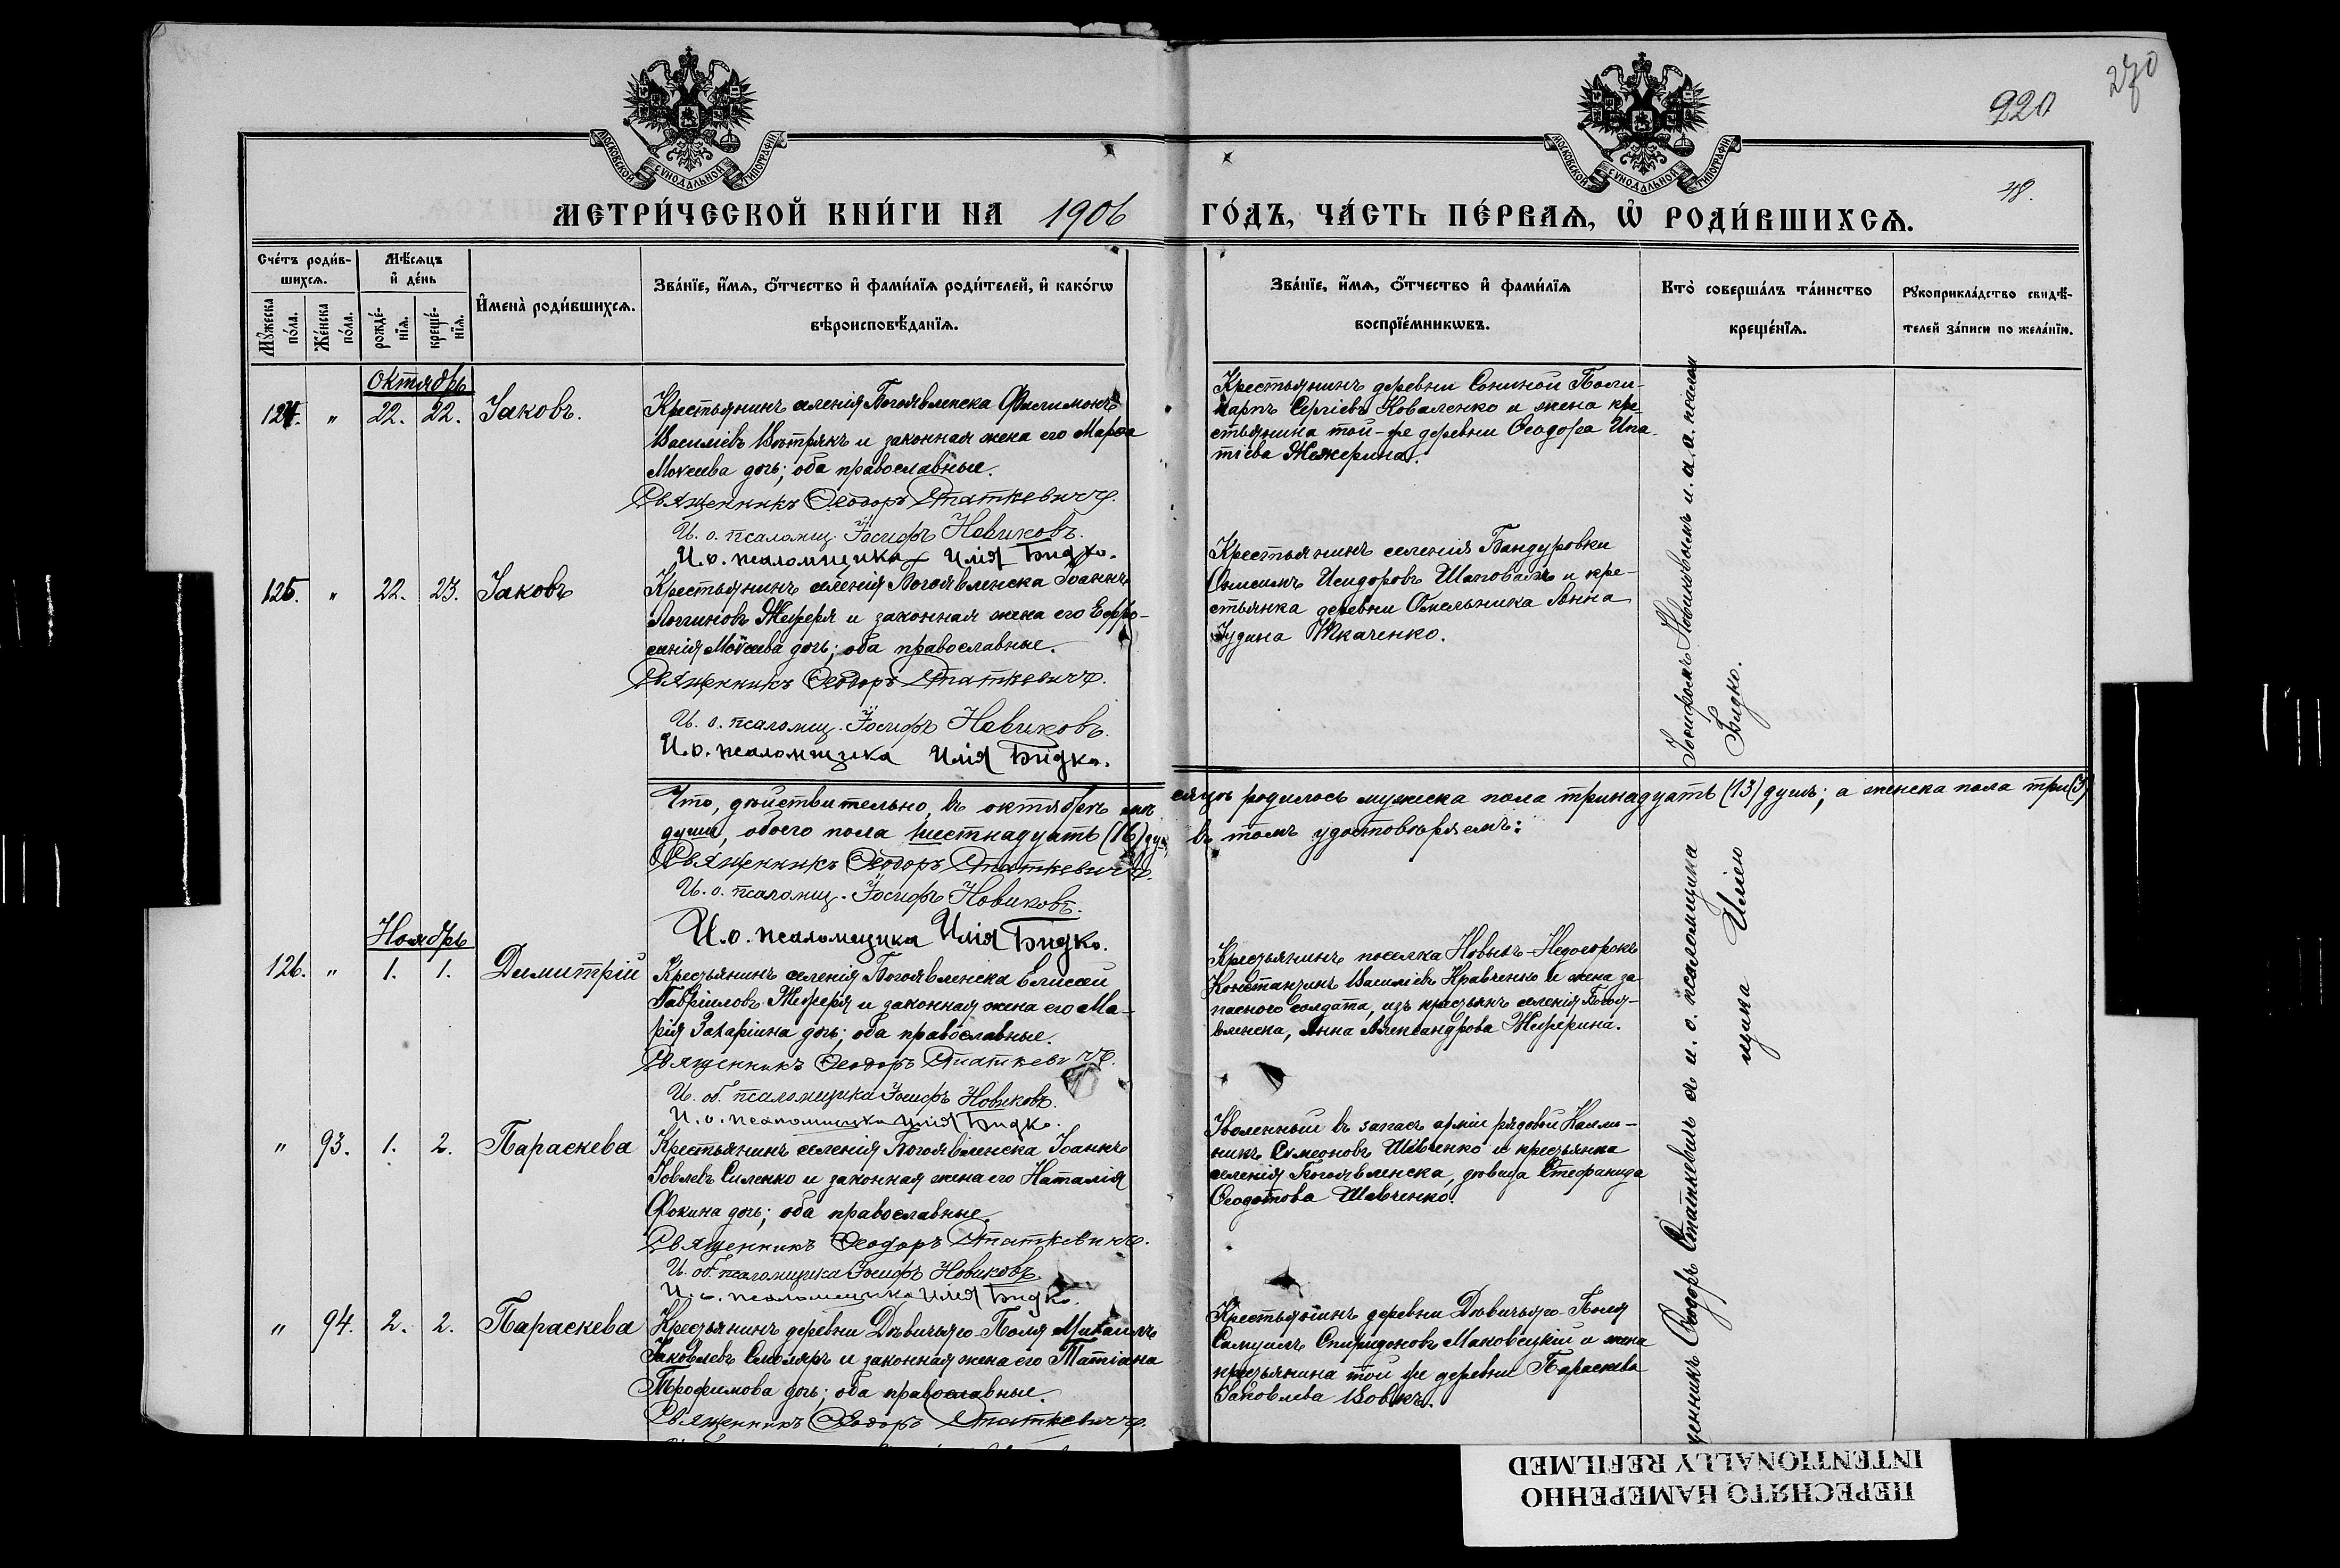 220
270
МОСКОВСКОЙ СѴНОДАЛЬНОЙ ТИПОГРАФІИ
МОСКОВСКОЙ СѴНОДАЛЬНОЙ ТИПОГРАФІИ
МЕТРИ́ЧЕСКОЙ КНИ́ГИ НА 1906 ГО́ДЪ, ЧА́СТЬ ПЕ́РВАѦ, Ѡ҆ РОДИ́ВШИХСѦ.
Сче́тъ роди́в-
шихсѧ.
Мꙋ́жеска по́ла.
Же́нска по́ла.
Мѣ́сѧцъ и҆ де́нь
рожде́-
нїѧ.
креще́-
нїѧ.
И҆мена̀ роди́вшихсѧ.
Зва́нїе, и҆́мѧ, ѻ҆́тчество и҆ фами́лїѧ роди́телей, и҆ како́гѡ
вѣроисповѣ́данїѧ.
Зва́нїе, и҆́мѧ, ѻ҆́тчество и҆ фами́лїѧ
воспрїе́мникѡвъ.
Кто̀ соверша́лъ та́инство
креще́нїѧ.
Рꙋкоприкла́дство свидѣ́-
телей за́писи по жела́нїю.
Октябрь
124. " 22. 22. Іаковъ.
Крестьянинъ селенія Богоявленска Филимонъ
Василіевъ Вѣтрякъ и законная жена его Марѳа
Моѵсеева дочь; оба православные.
Священникъ Ѳеодоръ Статкевичъ.
И. о. псаломщ. Іосифъ Новиковъ.
И. о. псаломщика Илія Бидко.
Крестьянинъ деревни Сониной Поли-
карпъ Сергіевъ Коваленко и жена кре-
стьянина той-же деревни Ѳеодора Ипа-
тіева Жежерина.
125. " 22. 23. Іаковъ
Крестьянинъ селенія Богоявленска Іоаннъ
Логгиновъ Жежеря и законная жена его Евфро-
синія Моѵсеева дочь; оба православные.
Священникъ Ѳеодоръ Статкевичъ.
И. о. псаломщ. Іосифъ Новиковъ.
И. о. псаломщика Илія Бидко.
Крестьянинъ селенія Бандуровки
Онисимъ Исидоровъ Шаповалъ и кре-
стьянка деревни Омельника Анна
Іудина Ткаченко.
Что, дѣйствительно, въ октябрѣ мѣ-
сяцѣ родилось мужеска пола тринадцать (13) душъ; а женска пола три (3)
души, обоего пола шестнадцать (16) душъ,
въ томъ удостовѣряемъ:
Священникъ Ѳеодоръ Статкевичъ.
И. о. псаломщ. Іосифъ Новиковъ.
И. о. псаломщика Илія Бидко.
Ноябрь
126. " 1. 1. Димитрій
Крестьянинъ селенія Богоявленска Елисей
Гавріиловъ Жежеря и законная жена его Ма-
рія Захаріина дочь; оба православные.
Священникъ Ѳеодоръ Статкевичъ.
И. об. псаломщика Іосифъ Новиковъ.
И. о. псаломщика Илія Бидко.
Крестьянинъ поселка Новыхъ-Недогорокъ
Константинъ Василіевъ Кравченко и жена за-
паснаго солдата, изъ крестьянъ селенія Богоя-
вленска, Анна Александрова Жежерина.
" 93. 1. 2. Параскева
Крестьянинъ селенія Богоявленска Іоаннъ
Іовлевъ Силенко и законная жена его Наталія
Фокина дочь; оба православные.
Священникъ Ѳеодоръ Статкевичъ.
И. об. псаломщика Іосифъ Новиковъ.
И. о. псаломщика Илія Бидко.
Уволенный въ запасъ арміи рядовой Калли-
никъ Симеоновъ Шевченко и крестьянка
селенія Богоявленска, дѣвица Стефанида
Ѳеодотова Шевченко.
" 94. 2. 2. Параскева
Крестьянинъ деревни Дѣвичьяго-Поля Михаилъ
Іаковлевъ Смоляръ и законная жена его Татіана
Трофимова дочь; оба православные.
Священникъ Ѳеодоръ Статкевичъ.
Крестьянинъ деревни Дѣвичьяго-Поля
Самуилъ Спиридоновъ Маковецкій и жена
крестьянина той же деревни Параскева
Іаковлева Вовкъ.
Ѳеодоръ Статкевичъ съ и. о. псаломщика Іосифомъ Новиковымъ и и. о. псалом-
щика Иліею Бидко.
ПЕРЕСНЯТО НАМЕРЕННО
INTENTIONALLY REFILMED